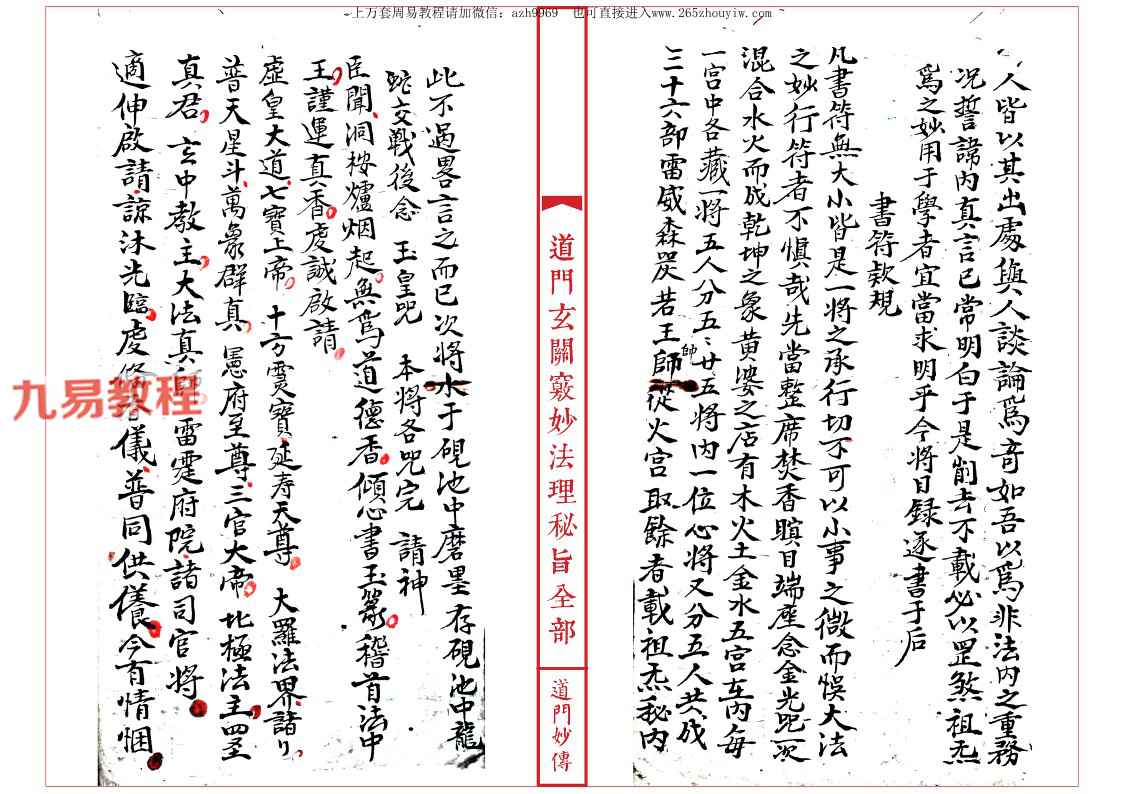 上万套周易教程请加微信：azh9969　也可直接进入www.265zhouyiw.com
人皆以其出處與人談論爲奇如吾以爲非法內之重務
况誓諱內真言已常明白于是削去不載必以罡煞祖炁
爲之妙用于學者宜當求明乎今將目録逐書于后
書符欵規
凡書符無大小皆是一將之承行切不可以小事之微而悞大法
之妙行符者不慎哉先當整席焚香瞑目端座念金光咒一次
混合水火而成乾坤之象黄婆之店有木火土金水五宫在內每
一宫中各藏一將五人分五〻廿五將內一位心將又分五人共成
三十六部雷威森炭若王師帥從火宫取餘者載祖炁秘內
道門玄關竅妙法理秘旨全部
道門妙傳
此不過畧言之而已次將水于硯池中磨墨存硯池中龍
蛇交戰後念　玉皇咒　本將各咒完　請神
臣聞洞桉爐烟起無爲道德香傾心書玉篆稽首法中
王謹運真香虔誠啟請
虛皇大道七寶上帝　十方灵寶延寿天尊　大羅法界諸
普天星斗萬彖群真　憲府至尊三官大帝　北極法主四圣
真君　玄中教主大法真師　雷霆府院諸司官將
適伸啟請諒沐光臨虔備　儀普同供養今有情悃
九易教程